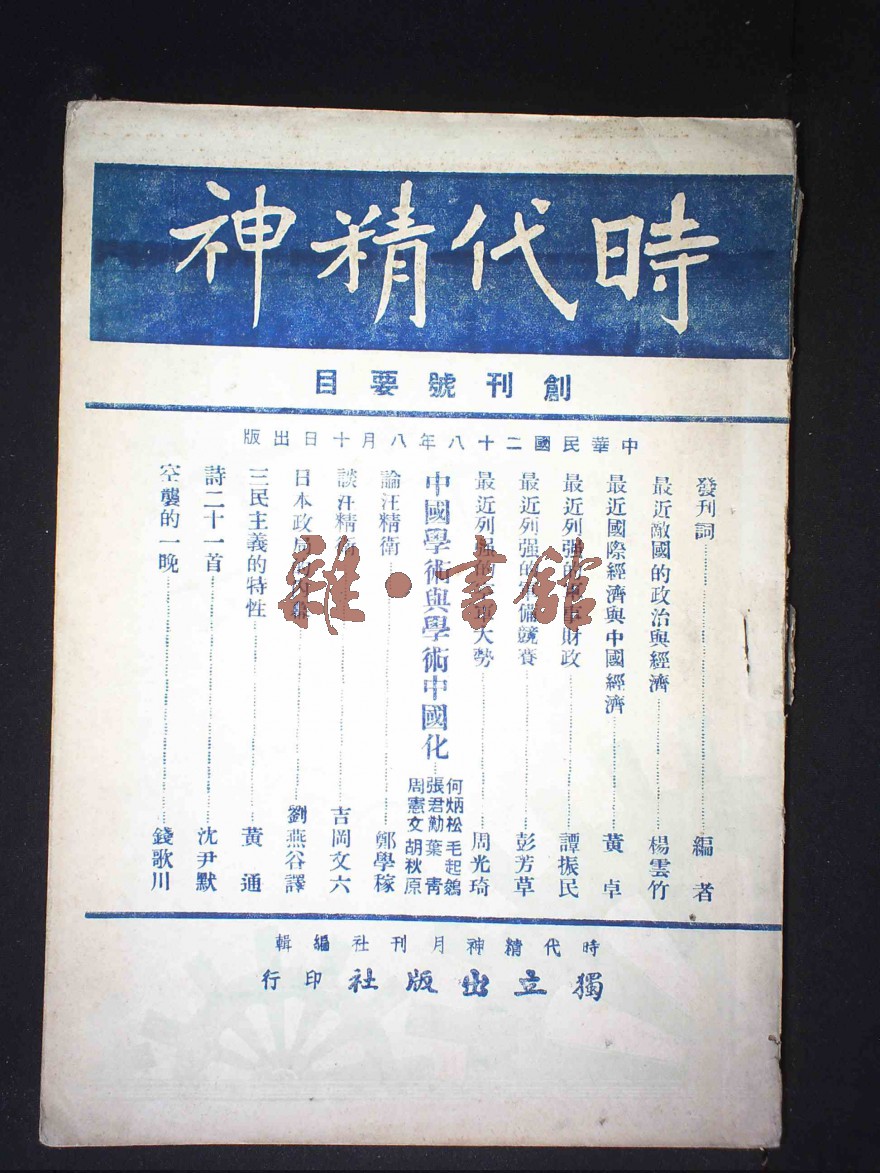 時代精神
創刊號要目
中華民國二十八年八月十日出版
發刊詞 編者
最近敵國的政治與經濟 楊雲竹
最近國際經濟與中國經濟 黃卓
最近列强的 財政 譚振民
最近列强的 備競賽 彭芳草
最近列强的 大勢 周光琦
中國學術與學術中國化 何炳松 毛起鵕 張君勱 葉青 周憲文 胡秋原
論汪精衛 鄭學稼
談汪精衛 吉岡文六
日本政局 劉燕谷譯
三民主義的特性 黃通
詩二十一首 沈尹默
空襲的一晚 錢歌川
時代精神月刊社編輯
獨立出版社印行
雜·書館